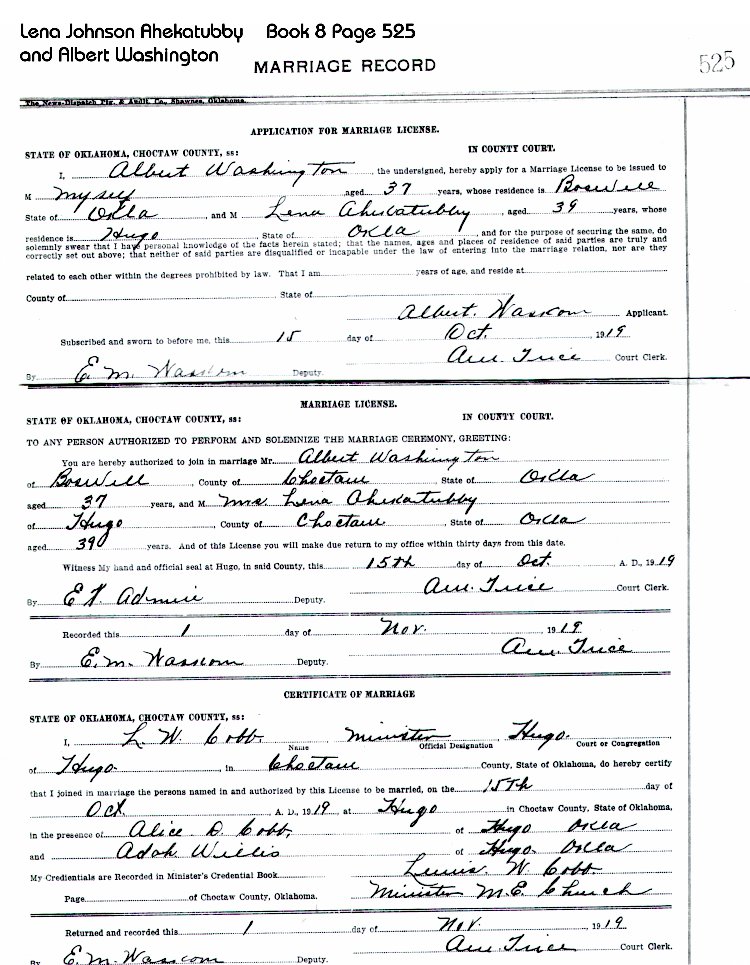 Lena Johnson Ahekatubby Book 8 Page 525
and Albert Washington
MARRIAGE RECORD 525
The News-Dispatch Ptg. & Audit. Co., Shawnee, Oklahoma.
APPLICATION FOR MARRIAGE LICENSE.
STATE OF OKLAHOMA, CHOCTAW COUNTY, ss: IN COUNTY COURT.
I, Albert Washington the undersigned, hereby apply for a Marriage License to be issued to
M myself aged 37 years, whose residence is Boswell
State of Okla and M Lena Ahekatubby, aged 39 years, whose
residence is Hugo State of Okla, and for the purpose of securing the same, do
solemnly swear that I have personal knowledge of the facts herein stated; that the names, ages and places of residence of said parties are truly and
correctly set out above; that neither of said parties are disqualified or incapable under the law of entering into the marriage relation, nor are they
related to each other within the degrees prohibited by law. That I am years of age, and reside at
County of State of
Albert. Wascom Applicant.
Subscribed and sworn to before me, this 15 day of Oct. 1919
By E. M. Wascom Deputy. Trice Court Clerk.
MARRIAGE LICENSE.
STATE OF OKLAHOMA, CHOCTAW COUNTY, ss: IN COUNTY COURT.
TO ANY PERSON AUTHORIZED TO PERFORM AND SOLEMNIZE THE MARRIAGE CEREMONY, GREETING:
You are hereby authorized to join in marriage Mr. Albert Washington
of Boswell, County of Choctaw State of Okla
aged 37 years, and M mrs Lena Ahekatubby
of Hugo, County of Choctaw, State of Okla
aged 39 years. And of this License you will make due return to my office within thirty days from this date.
Witness My hand and official seal at Hugo, in said County, this 15th day of Oct. A. D., 1919
By Deputy. Trice Court Clerk.
Recorded this 1 day of Nov. 1919
By E. M. Wascom Deputy. Trice
CERTIFICATE OF MARRIAGE
STATE OF OKLAHOMA, CHOCTAW COUNTY, ss:
I, L. W. Cobb. minister Hugo.
Name Official Designation Court or Congregation
of Hugo. in Choctaw County, State of Oklahoma, do hereby certify
that I joined in marriage the persons named in and authorized by this License to be married, on the 15th day of
Oct A. D., 1919, at Hugo in Choctaw County, State of Oklahoma,
in the presence of Alice D. Cobb, of Hugo Okla
and Adah Willis of Hugo. Okla
My Credentials are Recorded in Minister's Credential Book Lewis. W. Cobb.
Page of Choctaw County, Oklahoma. Minister M.E. Church
Returned and recorded this 1 day of Nov. 1919
By E. M. Wascom Deputy. Trice Court Clerk.